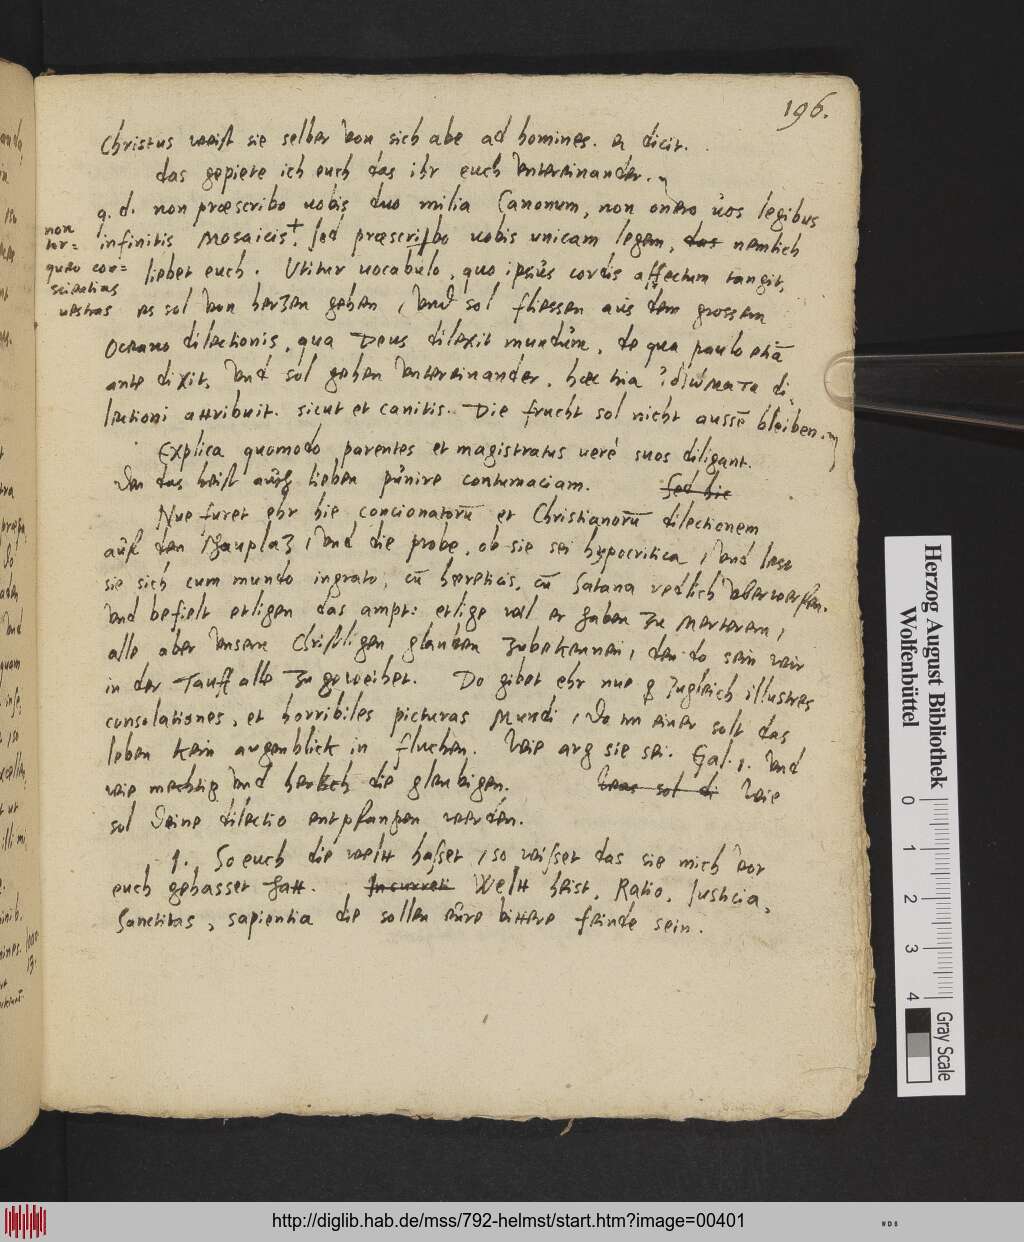 196.
Christus weist sie selber von sich abe ad homines. et dicit.
das gepiete ich euch das ihr euch untereinander.
q. d. non præscribo vobis duo milia Canonum, non onero vos legibus
infinitis Mosaicis+. sed præscribo vobis unicam legem, das nemlich
non tor=
queo con=
scientias
vestras
liebet euch. Utitur vocabulo, quo ipsius cordis affectum tangit,
es sol von herzen gehen, und sol fliessen aus dem grossem
Oceano dilectionis, qua Deus dilexit mundum, de qua paulo etiā
ante dixit, und sol gehen untereinander. hæc tria ἰδιώματα di,
lectioni attribuit. sicut et canitis. Die frucht sol nicht aussē bleiben.
Explica quomodo parentes et magistratus verè suos diligant.
Den das heist auch lieben punire contumaciam. Sed hic
Nue furet ehr hie concionatorū et Christianorū dilectionem
auff den schauplaz, und die probe, ob sie sei hypocritica, und lest
sie sich cum mundo ingrato, cū hæreticis, cū Satana redlich uberwerfen.
und befielt etligen das ampt: etlige wil er haben zu Marterern,
alle aber unsern Christligen glauben zubekennen, den do sein wir
in der Tauff alle zu geweihet. Do gibet ehr nue zugleich illustres
consolationes, et horribiles picturas Mundi, do in einer solt das
leben kein augenblick in fluchen. Wie arg sie sei. Gal. 1. Und
wie mechtig und die gleubigen. Was sol di Wie
sol deine dilectio entpfangen werden.
1. So euch die welt hasset, so wisset das sie mich vor
euch gehasset hatt. Incurreti Welt heist, Ratio, Justicia,
Sanctitas, sapientia die sollen eure bittere feinde sein.
Herzog August Bibliothek
Wolfenbüttel
0 1 2 3 4
Gray Scale
http://diglib.hab.de/mss/792-helmst/start.htm?image=00401